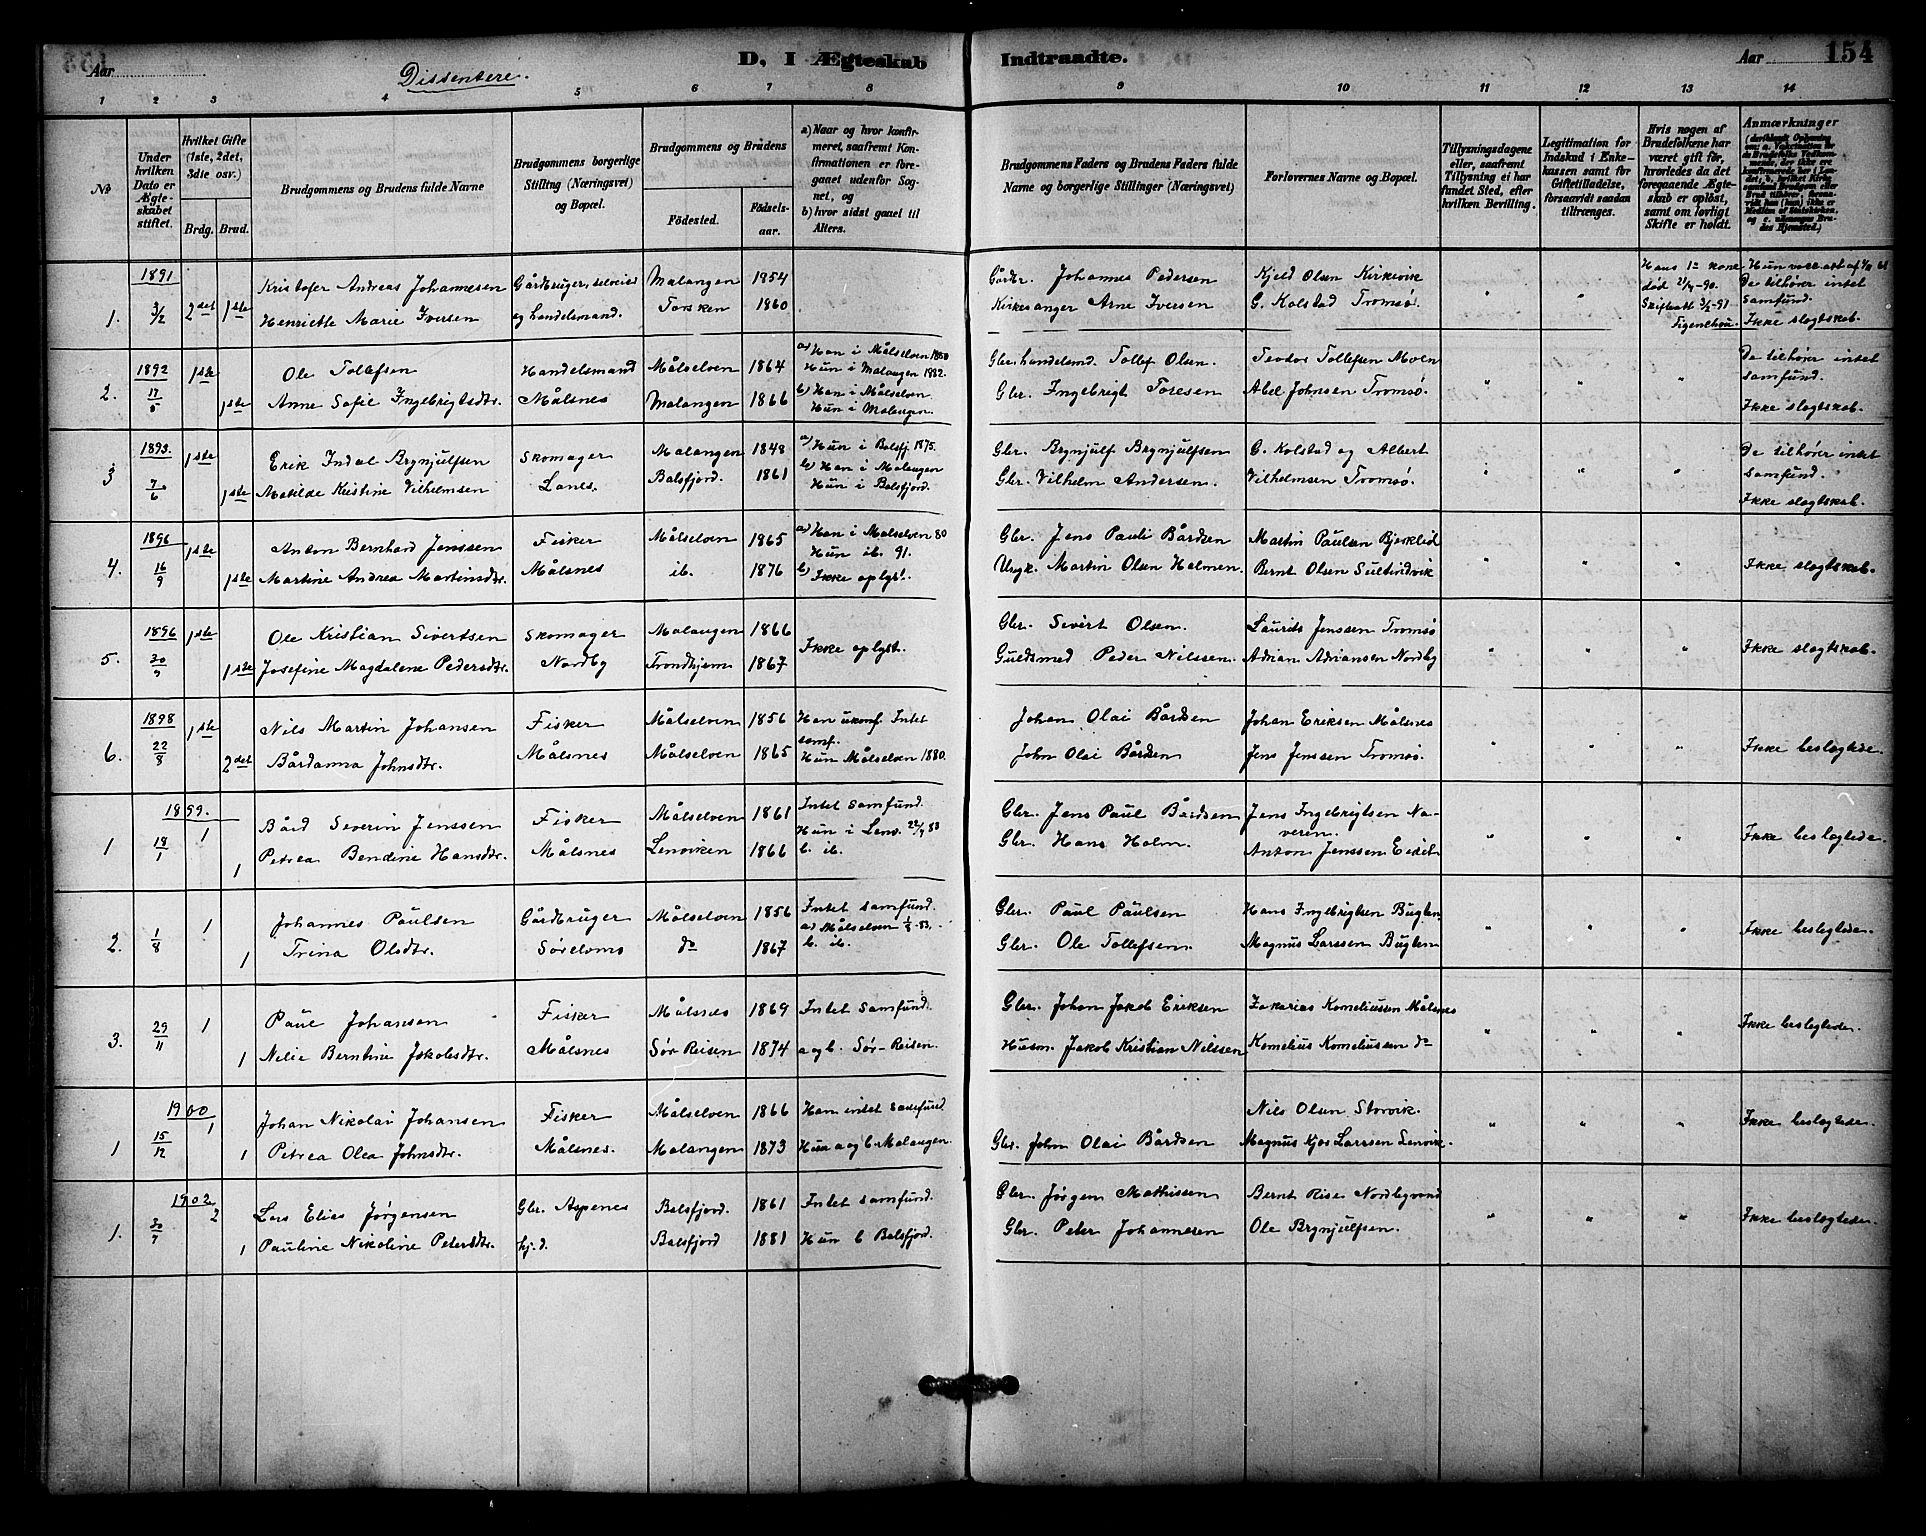 Aar
Dissentere.
D, I Ægteskab Indtraadte.
Aar
154
1 2 3 4 5 6 7 8 9 10 11 12 13 14
No
Under hvilken Dato er Ægteskabet stiftet.
Hvilket Gifte (1ste, 2det, 3die osv.)
Brdg. Brud.
Brudgommens og Brudens fulde Navne
Brudgommens borgerlige Stilling (Næringsvei) og Bopæl.
Brudgommens og Brudens
Födested.
Födselsaar.
a) Naar og hvor konfirmeret, saafremt Konfirmationen er foregaaet udenfor Sognet, og
b) hvor sidst gaaet til Alters.
Brudgommens Faders og Brudens Faders fulde Navne og borgerlige Stillinger (Næringsvei)
Forlovernes Navne og Bopæl.
Tillysningsdagene eller, saafremt Tillysning ei har fundet Sted, efter hvilken Bevilling.
Legitimation for Indskud i Enkekassen samt for Giftetilladelse, forsaavidt saadan tiltrænges.
Hvis nogen af Brudefolkene har været gift før, hvorledes da det foregaaende Ægteskab er opløst, samt om lovligt Skifte er holdt.
Anmærkninger
1891
1. 3/2 2det 1ste
Kristofer Andreas Johannesen Gårdbruger, selveier Malangen 1854
Henriette Marie Iversen og handelsmand. Torsken 1860
Gårdbr. Johannes Pedersen Kjeld Olsen Kirkevik
Kirkesanger Arne Iversen G. Kolstad Tromsø.
" "
Hans 1ste kone død 21/4-90.
De tilhører intet samfund.
Ikke slægtskab.
1892
2. 17/8 1ste 1ste
Ole Tollefsen Handelsmand Målselven 1864
Anne Sofie Ingebrigtsdtr. Målsnes Malangen 1866
a) Han i Målselven 1880
Hun i Malangen 1882.
b) Han i Målselven.
Hun i Malangen.
Gbr. handelsmd. Tollef Olsen. Teodor Tollefsen Moen
Gbr. Ingebrigt Toresen Abel Johnsen Tromsø.
" " "
De tilhører intet samfund.
Ikke slægtskab.
1893.
3 7/6 1ste 1ste
Erik Indal Brynjulfsen Skomager Malangen 1848
Matilde Kristine Vilhelmsen Lanes. Balsfjord. 1861
a) Hun i Balsfj. 1875.
b) Han i Malangen
Hun i Balsfjord.
Gbr. Brynjulf Brynjulfsen G. Kolstad og Albert
Gbr. Vilhelm Andersen. Vilhelmsen Tromsø.
" " "
De tilhører intet samfund.
Ikke slægtskab.
1896
4. 16/9 1ste 1ste
Anton Bernhard Jenssen Fisker Målselven 1865
Martine Andrea Martinsdtr. Målsnes ib. 1876
a) Han i Målselven 80
Hun ib. 91.
b) Ikke oplyst.
Gbr. Jens Pauli Bårdsen Martin Paulsen Bjerklid
Ungk. Martin Olsen Holmen. Bernt Olsen Sultindvik
" " "
Ikke slægtskab.
1896
5. 30/9 1ste 1ste
Ole Kristian Sivertsen Skomager Malangen 1866
Josefine Magdalene Pedersdtr. Nordby Trondhjem 1867
Ikke oplyst.
Gbr. Sivert Olsen. Laurits Jenssen Tromsø
Guldsmed Peder Nilssen. Adrian Adriansen Nordby
" " "
Ikke slægtskab.
1898
6. 22/8 1ste 2det
Nils Martin Johansen Fisker Målselven 1856
Bårdanna Johnsdtr. Målsnes Målselven 1865
Han ukonf. Intet samf.
Hun Målselven 1880.
Johan Olai Bårdsen Johan Eriksen Målsnes
John Olai Bårdsen Jens Jenssen Tromsø.
" " "
Ikke beslægtede.
1899.
1 18/1 1 1
Bård Severin Jenssen Fisker Målselven 1861
Petrea Bendine Hansdtr. Målsnes Lenviken 1866
Intet samfund.
Hun i Lenv. 22/9 83
b. ib.
Gbr. Jens Paul Bårdsen Jens Ingebrigtsen Naveren.
Gbr. Hans Holm. Anton Jenssen Eidet
" " "
Ikke beslægtede.
2. 1/8 1 1
Johannes Paulsen Gårdbruger Målselven 1856
Trina Olsdtr. Sørelvmo do 1867
Intet samfund.
a) Målselven -83.
b. ib.
Gbr. Paul Paulsen Hans Ingebrigtsen Bugten
Gbr. Ole Tollefsen. Magnus Larssen Bugten
" " "
Ikke beslægtede.
3. 29/11 1 1
Paul Johansen Fisker Målsnes 1869 Intet samfund.
Nelie Berntine Jakobsdtr. Målsnes Sør Reisen 1874 a og b. Sør-Reisen.
Gbr. Johan Jakob Eriksen Zakarias Korneliussen Målsnes
Husm. Jakob Kristian Nilssen Kornelius Korneliussen do
" " "
Ikke beslægtede.
1900
1 15/12 1 1
Johan Nikolai Johansen Fisker Målselven 1866 Han intet samfund.
Petrea Olea Johnsdtr. Målsnes. Malangen 1873 Hun a og b. Malangen.
Nils Olsen Storvik.
Gbr. John Olai Bårdsen Magnus Kjos Larssen Lenvik.
" " "
Ikke beslægtede.
1902
1. 30/7 2 1
Lars Elias Jørgensen Gbr. Aspenes Balsfjord. 1861 Intet samfund.
Pauline Nikoline Petersdtr. hj. d. Balsfjord 1881 Hun b Balsfjord.
Gbr. Jørgen Mathissen Bernt Rise Nordbyvand
Gbr. Peter Johannesen Ole Brynjulfsen.
" " "
Ikke beslægtede.